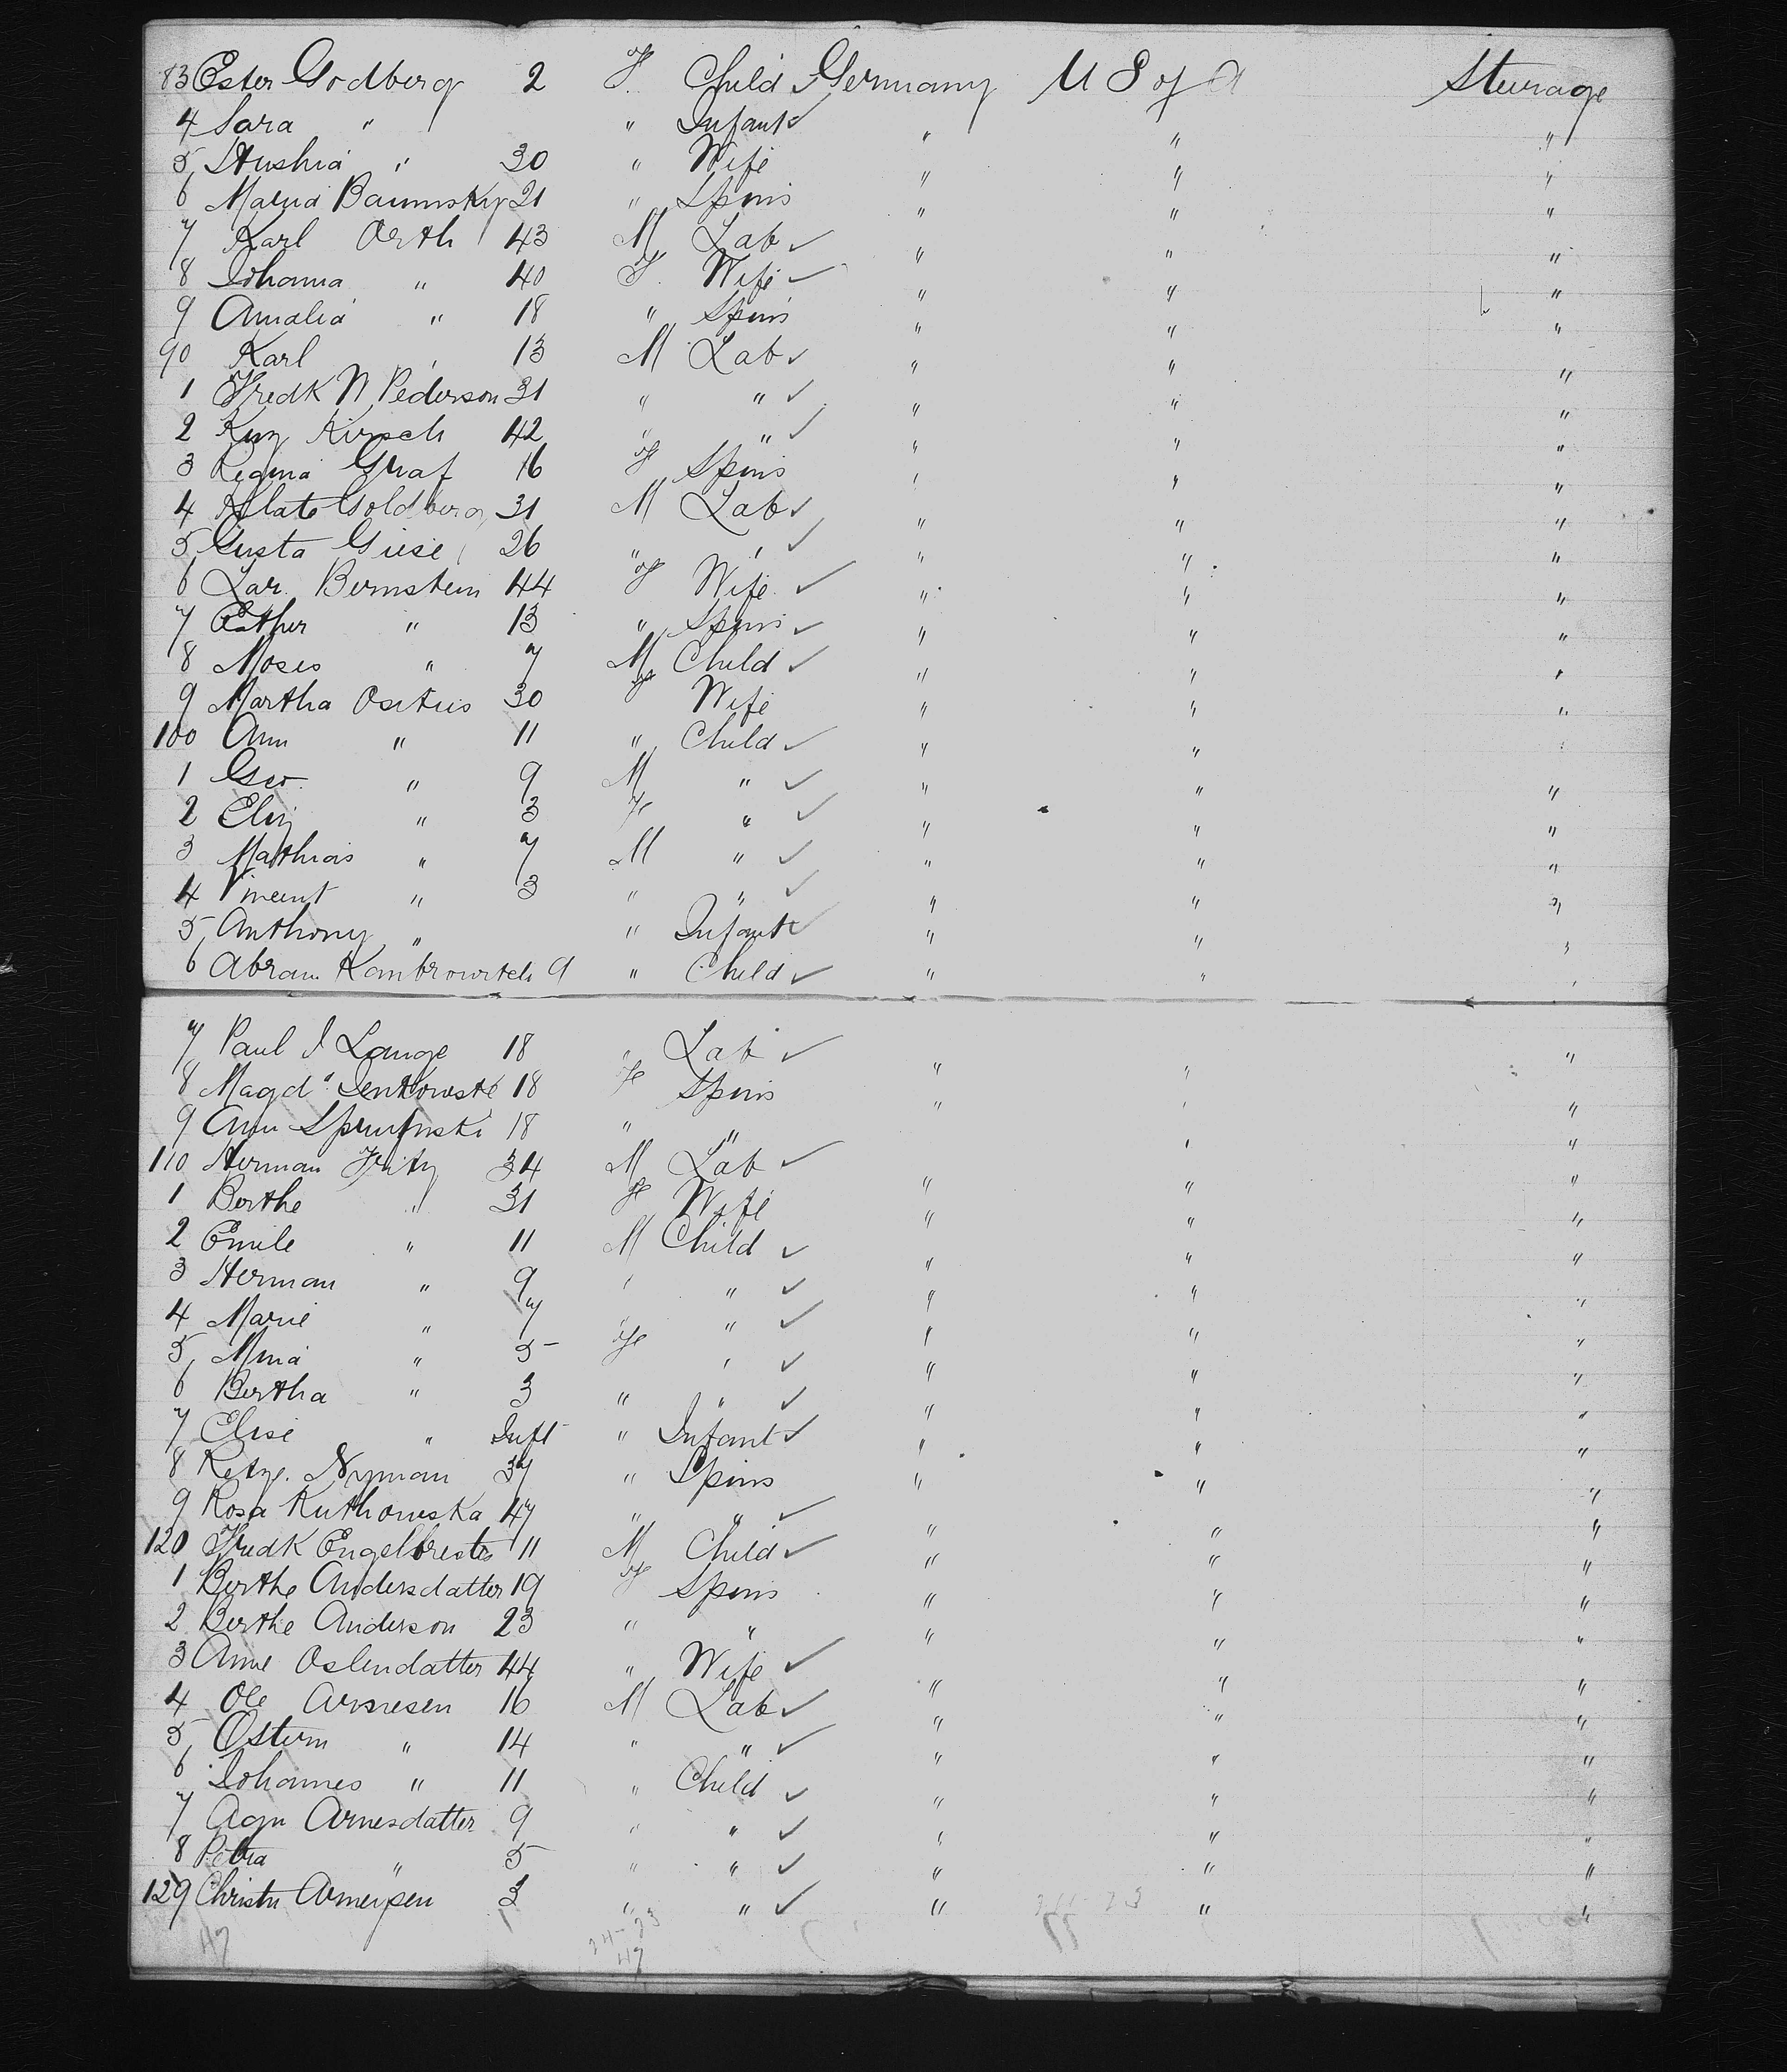 83 Ester Godberg 2 F. Child ✓ Germany U S of A Sturage
4 Sara " " Infant ✓ " " "
5 " 30 " Wife " " "
6 Maria 21 " Spins " " "
7 Karl Orth 43 M Lab ✓ " " "
8 Johanna " 40 F. Wife ✓ " " "
9 Amalia " 18 " Spins " " "
90 Karl " 13 M Lab ✓ " " "
1 Fredk N Pederson 31 " " ✓ " " "
2 Kirsch 42 " " ✓ " " "
3 Regina Graf 16 F Spins " " "
4 Goldberg 31 M Lab ✓ " " "
5 Gusta Giese 26 " " ✓ " " "
6 Zar. Bernstein 44 F Wife ✓ " " "
7 Esther " 13 " Spins ✓ " " "
8 Moses " 7 M Child ✓ " " "
9 Martha 30 F Wife " " "
100 Ann " 11 " Child ✓ " " "
1 Geo. " 9 M " ✓ " " "
2 Eliz " 3 F " ✓ " " "
3 Mathias " 7 M " ✓ " " "
4 Vincent " 3 " " ✓ " " "
5 Anthony " " Infant ✓ " " "
6 Abram Kambrowitch 9 " Child ✓ " " "
7 Paul J Lange 18 " Lab ✓ " " "
8 Magda 18 F Spins " " "
9 Ann 18 " " " "
110 Herman Fritz 34 M Lab ✓ " " "
1 Berthe " 31 F Wife " " "
2 Emile " 11 M Child ✓ " " "
3 Herman " 9 " " ✓ " " "
4 Marie " 7 F " ✓ " " "
5 Mina " 5 " ✓ " " "
6 Bertha " 3 " " ✓ " " "
7 Elise " Inft " Infant ✓ " " "
8 Nyman 37 " Spins " " "
9 Rosa Kuthowska 47 " " ✓ " " "
120 Fredk 11 M Child ✓ " " "
1 Berthe Andersdatter 19 F Spins " " "
2 Berthe Anderson 23 " " " " "
3 Anne Oslendatter 44 " Wife ✓ " " "
4 Ole Arnesen 16 M Lab ✓ " " "
5 Ostern " 14 " " ✓ " " "
6 Johannes " 11 " Child ✓ " " "
7 Agn Arnesdatter 9 " " ✓ " " "
8 Petra " 5 " " ✓ " " "
129 Christn 3 " " ✓ " " "
47 24-23
47